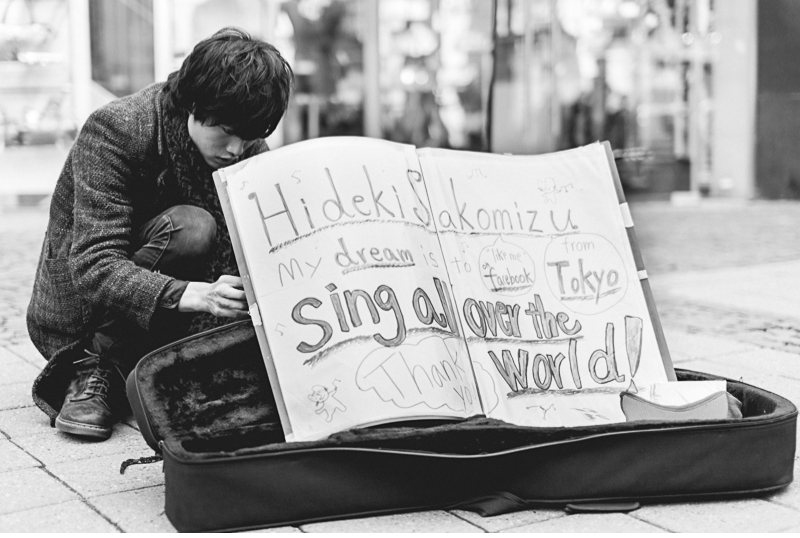 Hideki Sakomizu
My dream is to
"like me"
on
facebook
from
Tokyo
Sing all over the
World!
Thank
you